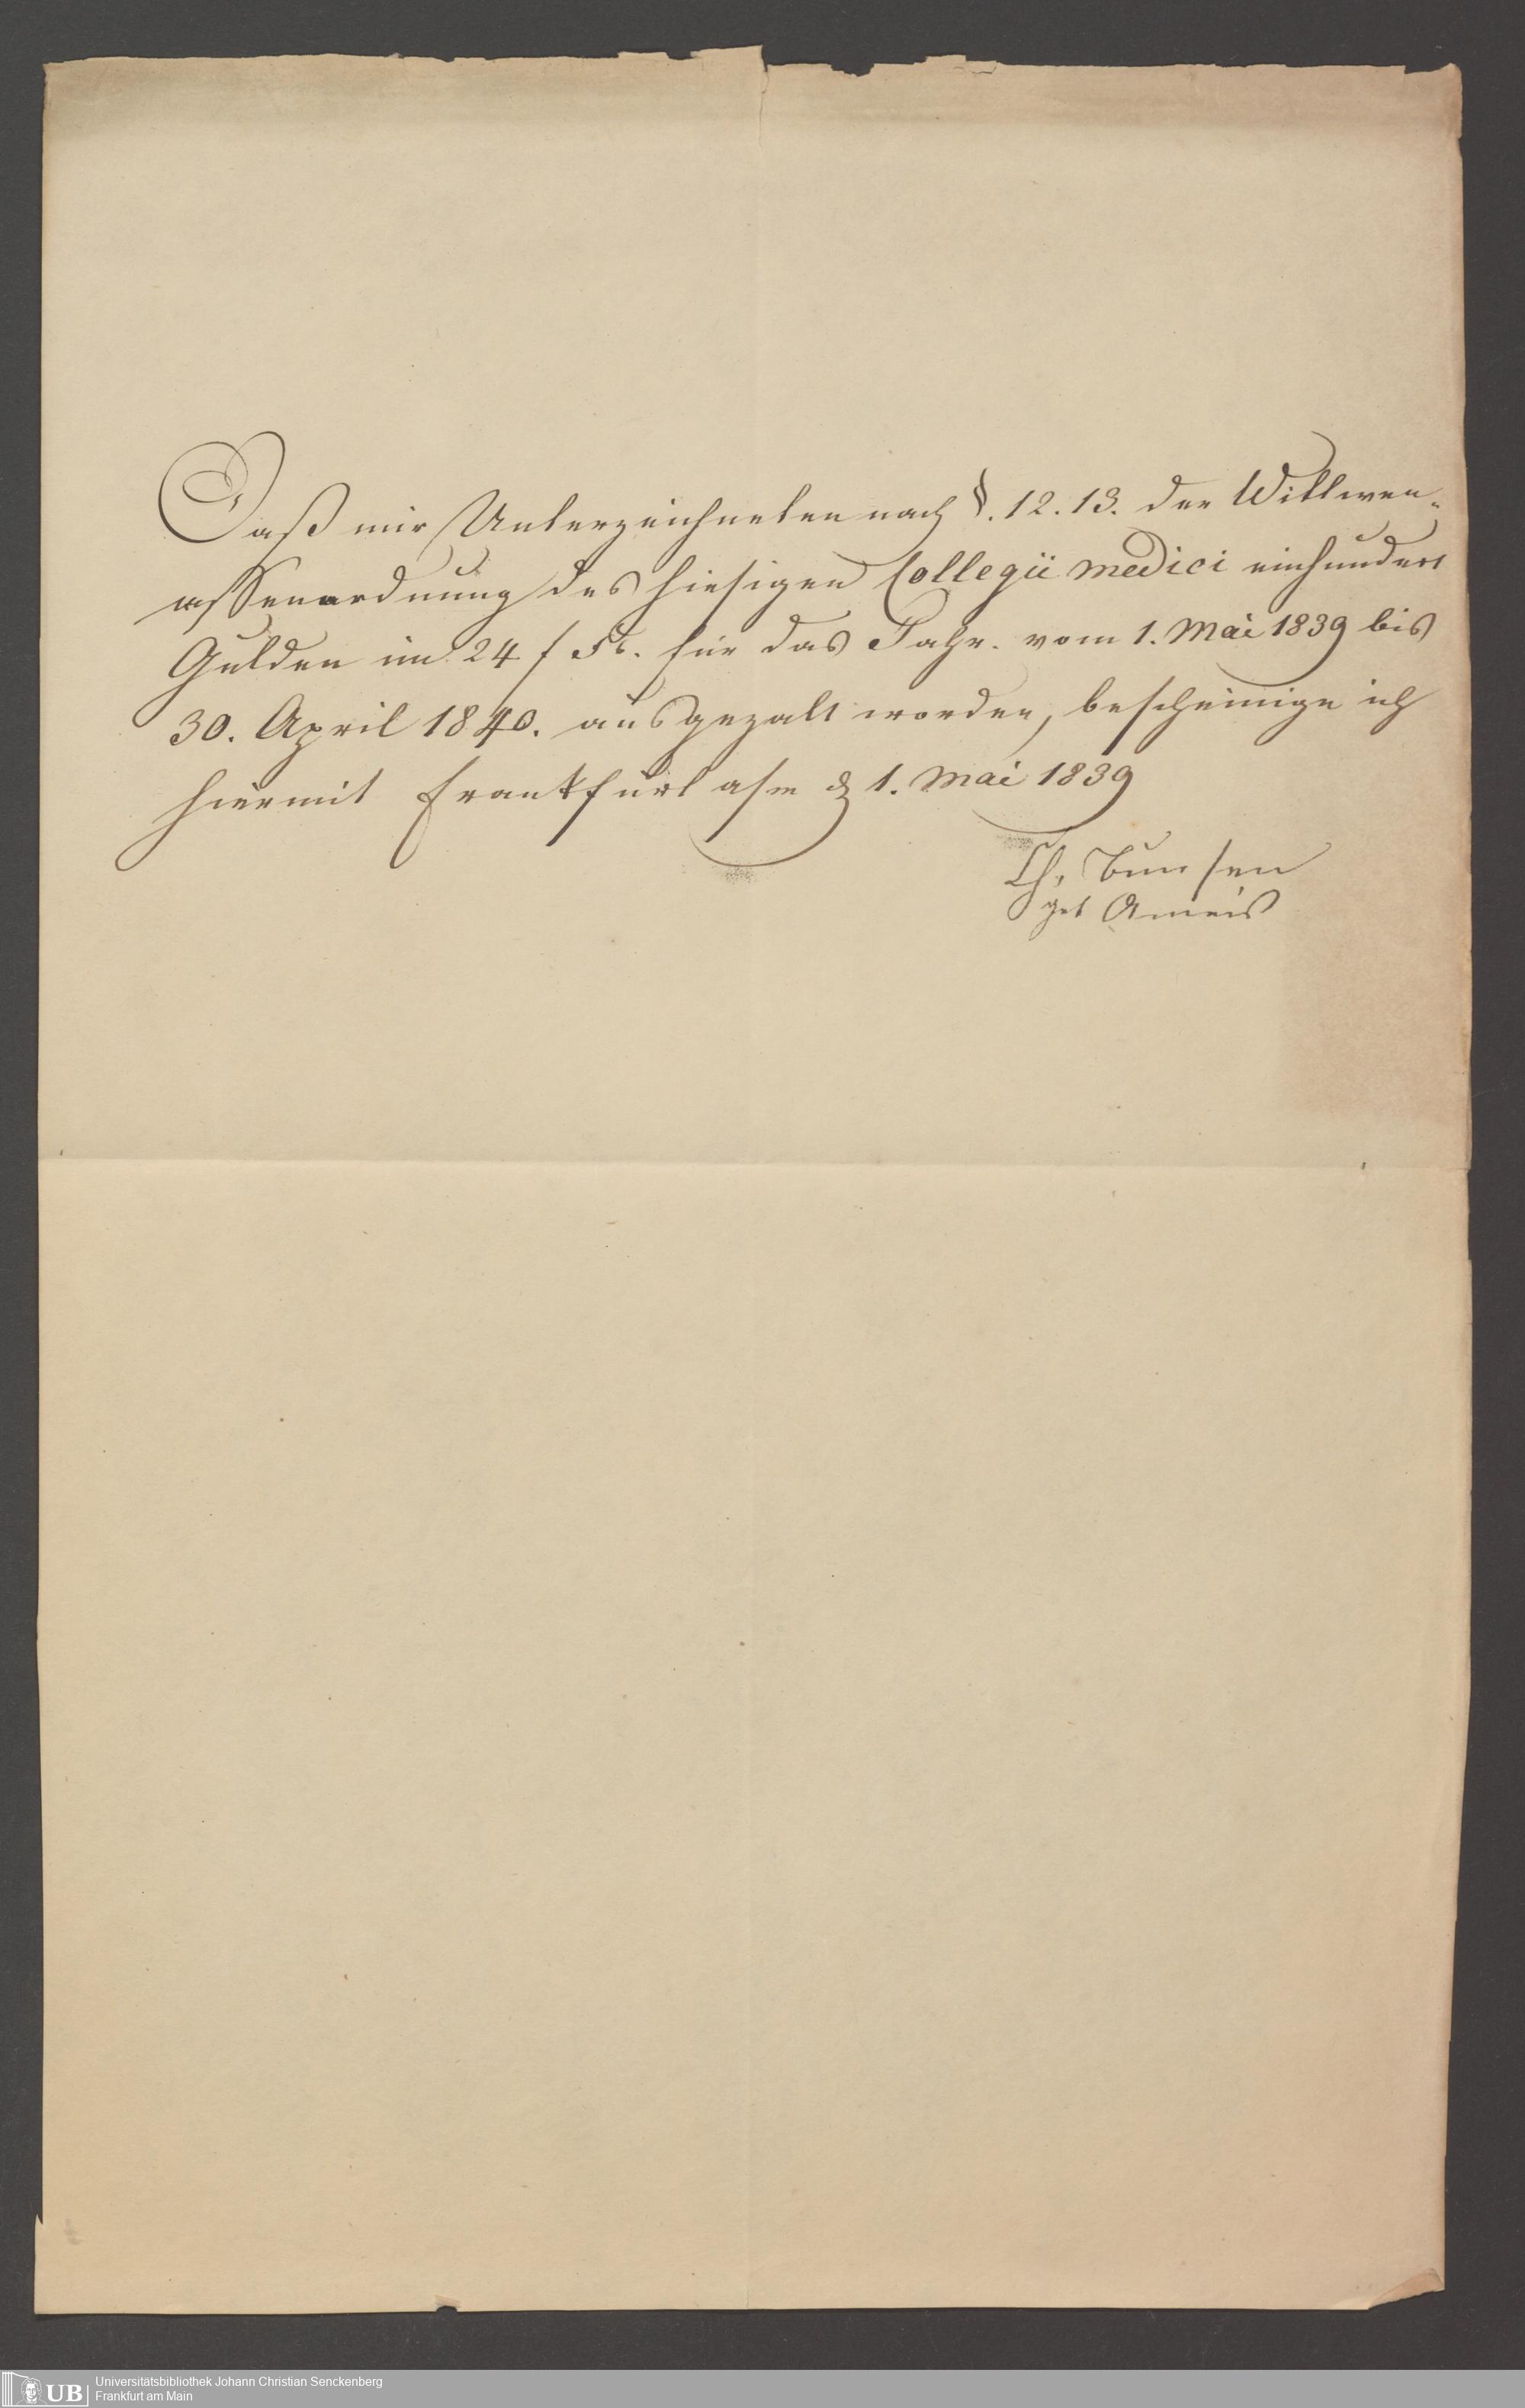 Daß mir Unterzeichneten nach §. 12. 13. der Wittwen-
assenordnung des hiesigen Collegii medici einhundert
Gulden im 24 f Fß. für das Jahr. vom 1. Mai 1839 bis
30. April 1840. ausgezalt worden, bescheinige ich
hiermit Frankfurt a/m d 1. Mai 1839
Ch. Bunsen
geb Ameis
UB
Universitätsbibliothek Johann Christian Senckenberg
Frankfurt am Main